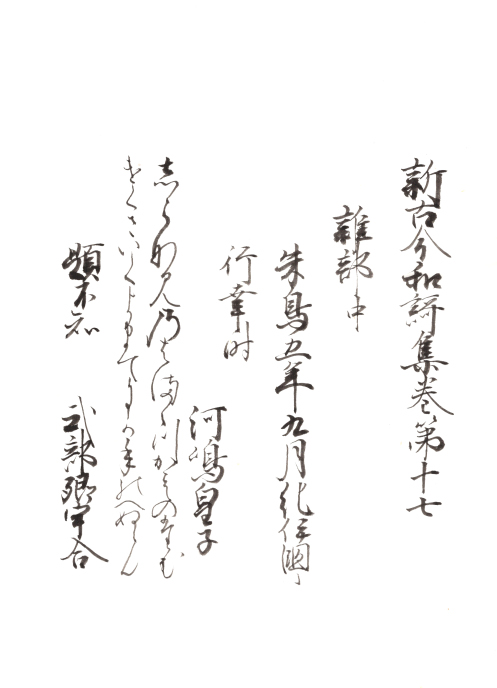 新古今和謌集巻第十七
雑部中
朱鳥五年九月紀伊國
行幸時
河嶋皇子
しら那見乃はま松かえのたむ
けくさいくよまてに可年のへぬらん
題不知
式部卿宇合